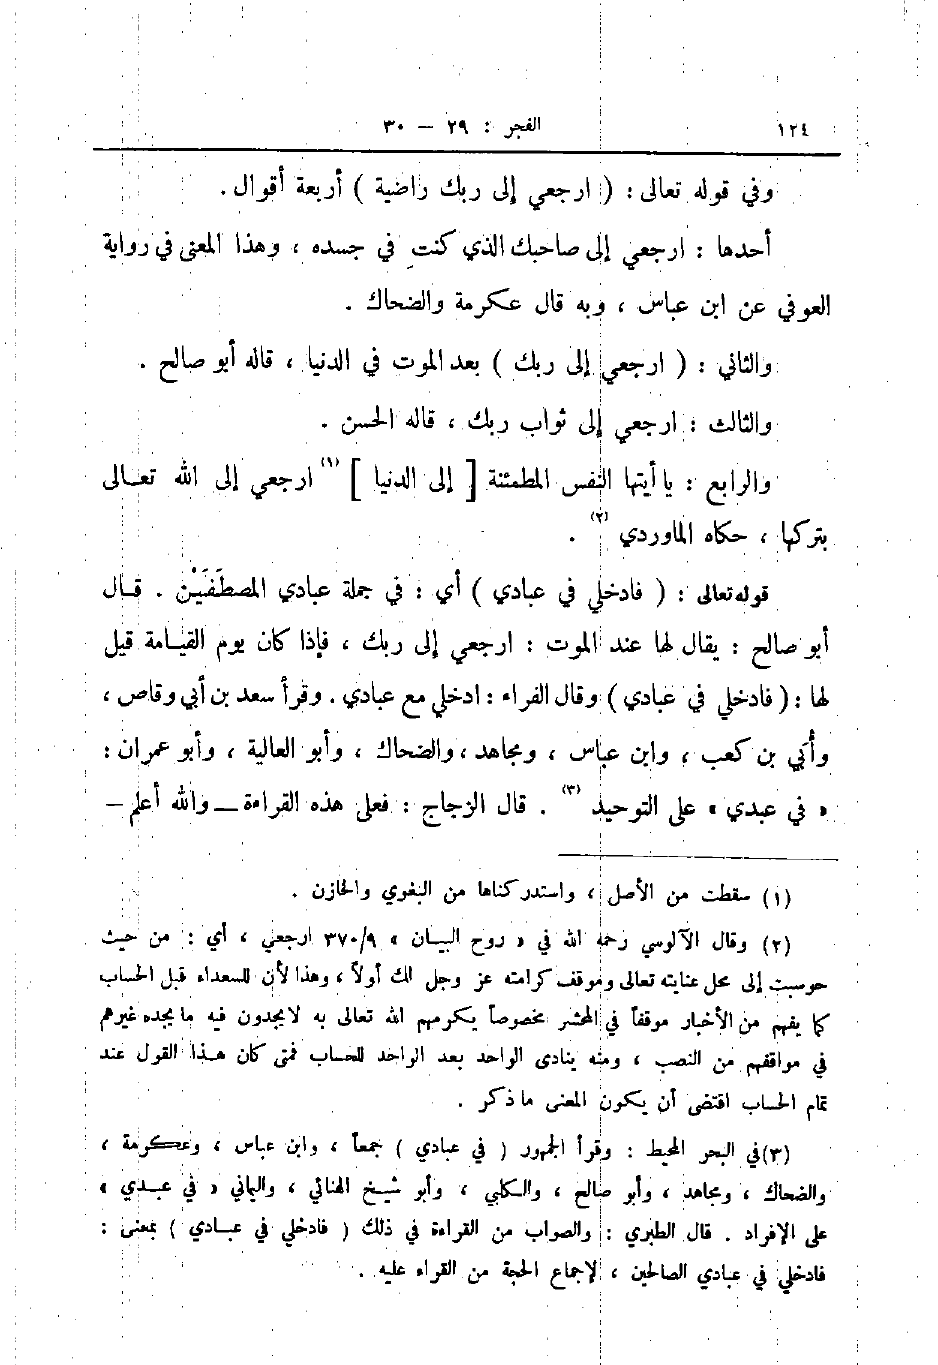 ١٢٤ الفجر : ٢٩ – ٣٠
وفي قوله تعالى : ( ارجعي إلى ربك راضية ) أربعة أقوال .
أحدها : ارجعي إلى صاحبك الذي كنتِ في جسده ، وهذا المعنى في رواية
العوفي عن ابن عباس ، وبه قال عكرمة والضحاك .
والثاني : ( ارجعي إلى ربك ) بعد الموت في الدنيا ، قاله أبو صالح .
والثالث : ارجعي إلى ثواب ربك ، قاله الحسن .
والرابع : يا أيتها النفس المطمئنة [ إلى الدنيا ] (١) ارجعي إلى الله تعالى
بتركها ، حكاه الماوردي (٢) .
قوله تعالى : ( فادخلي في عبادي ) أي : في جملة عبادي المصطَفَيْن . قال
أبو صالح : يقال لها عند الموت : ارجعي إلى ربك ، فإذا كان يوم القيامة قيل
لها : ( فادخلي في عبادي ) وقال الفراء : ادخلي مع عبادي . وقرأ سعد بن أبي وقاص ،
وأُبي بن كعب ، وابن عباس ، ومجاهد ، والضحاك ، وأبو العالية ، وأبو عمران :
« في عبدي » على التوحيد (٣) . قال الزجاج : فعلى هذه القراءة — والله أعلم —
(١) سقطت من الأصل ، واستدركناها من البغوي والخازن .
(٢) وقال الآلوسي رحمه الله في « روح البيان » ٣٧٠/٩ ارجعي ، أي : من حيث
حوسبت إلى محل عنايته تعالى وموقف كرامته عز وجل لك أولاً ، وهذا لأن للسعداء قبل الحساب
كما يفهم من الأخبار موقفاً في المحشر مخصوصاً يكرمهم الله تعالى به لا يجدون فيه ما يجده غيرهم
في مواقفهم من النصب ، ومنه ينادى الواحد بعد الواحد للحساب فمتى كان هذا القول عند
تمام الحساب اقتضى أن يكون المعنى ما ذكر .
(٣) في البحر المحيط : وقرأ الجمهور ( في عبادي ) جمعاً ، وابن عباس ، وعكرمة ،
والضحاك ، ومجاهد ، وأبو صالح ، والكلبي ، وأبو شيخ الهنائي ، واليماني « في عبدي »
على الإفراد . قال الطبري : والصواب من القراءة في ذلك ( فادخلي في عبادي ) بمعنى :
فادخلي في عبادي الصالحين ، لإجماع الحجة من القراء عليه .